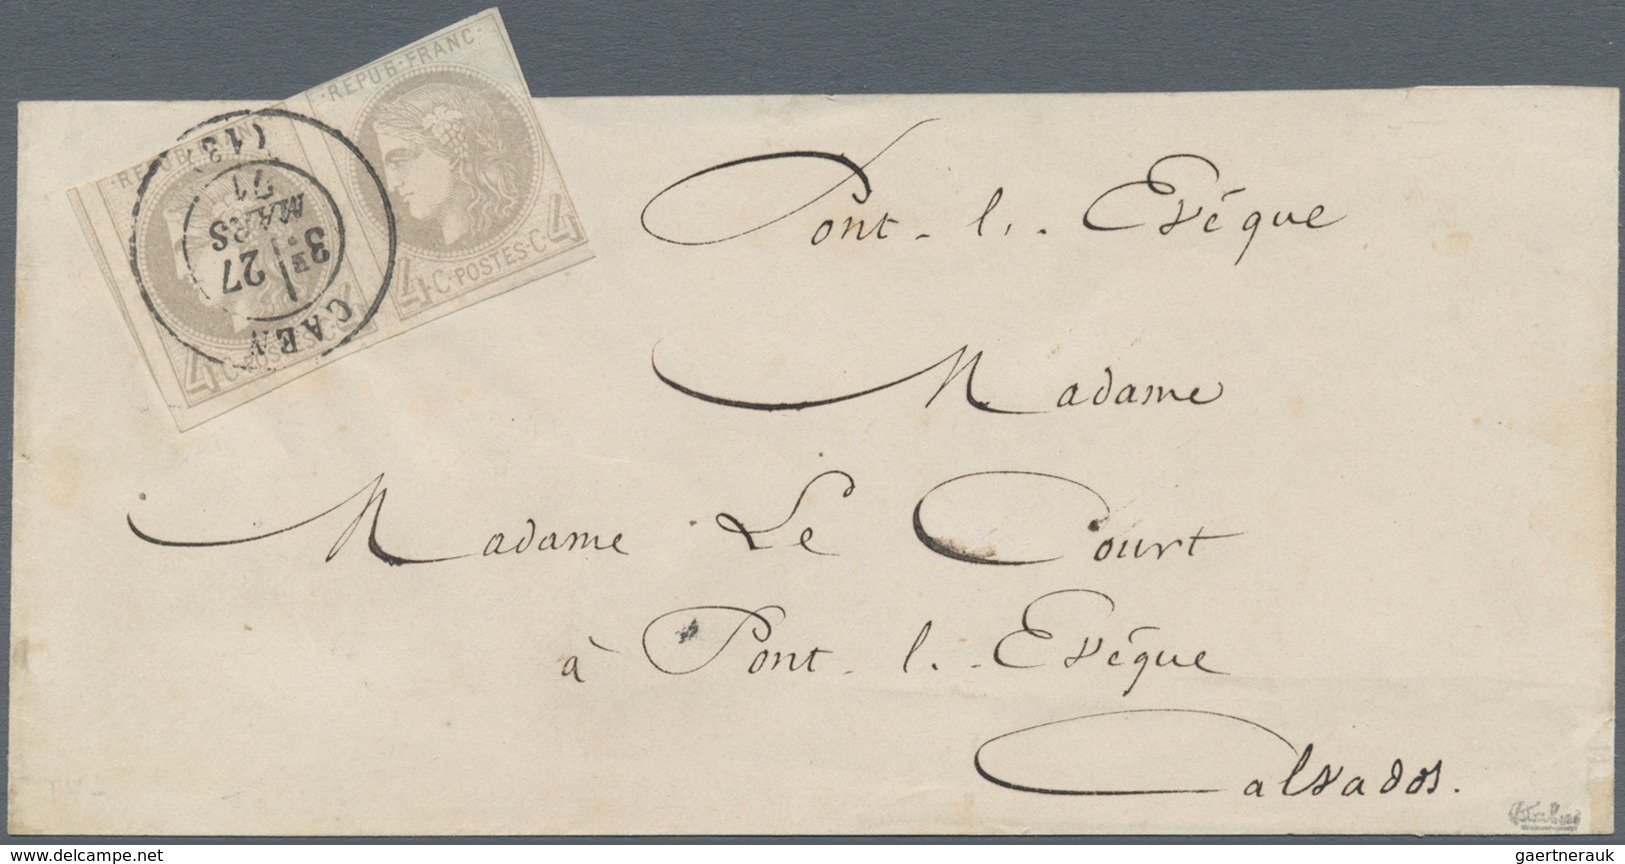 · REPUB · FRANC ·
4 C · POSTES · C 4
· REPUB
4 C · POSTES · C 4
CAEN
3E
27
MARS
71
(13)
Pont - l. - Evêque
Madame
Madame Le Court
à Pont - l. - Evêque
Calvados.
delcampe.net
gaertnerauk